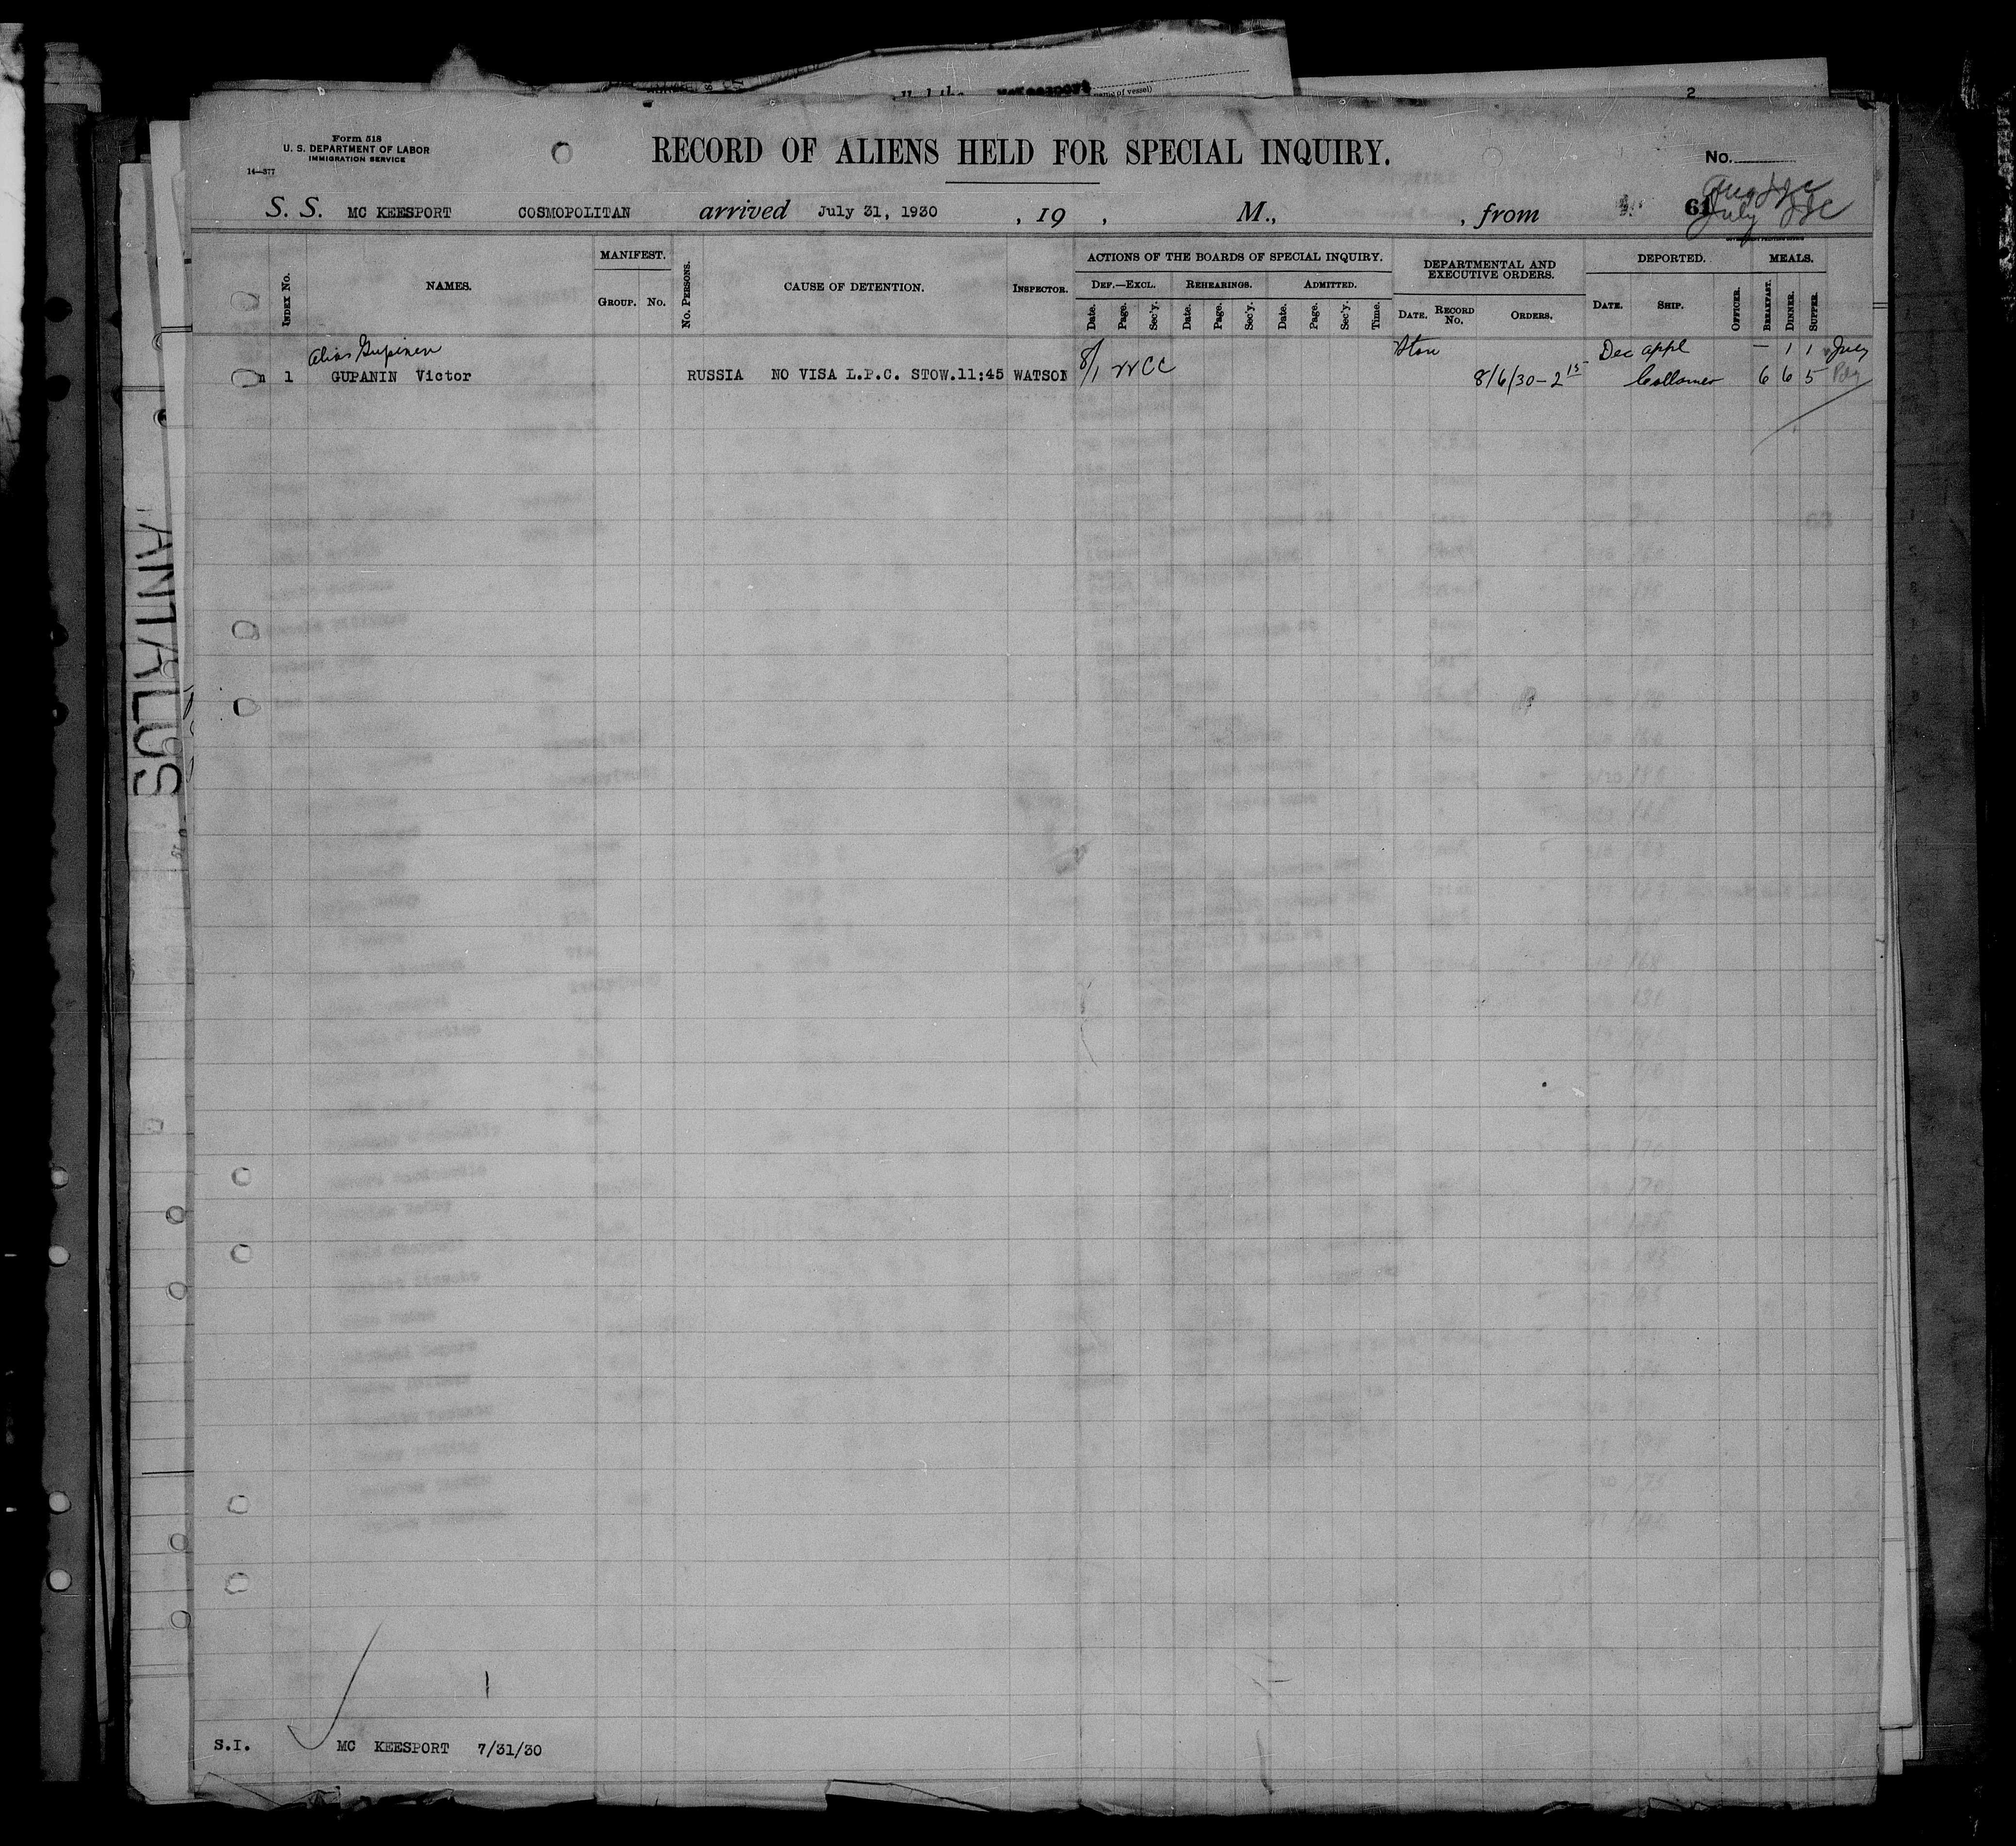 name of vessel)
2
Form 518
U. S. DEPARTMENT OF LABOR
IMMIGRATION SERVICE
14—377
RECORD OF ALIENS HELD FOR SPECIAL INQUIRY.
No.
S. S. MC KEESPORT COSMOPOLITAN arrived July 31, 1930 , 19 , M., , from 61
July
INDEX NO.
NAMES.
MANIFEST.
GROUP. NO.
NO. PERSONS.
CAUSE OF DETENTION.
INSPECTOR.
ACTIONS OF THE BOARDS OF SPECIAL INQUIRY.
DEF.—EXCL. REHEARINGS. ADMITTED.
Date. Page. Sec'y. Date. Page. Sec'y. Date. Page. Sec'y. Time.
DEPARTMENTAL AND
EXECUTIVE ORDERS.
DATE. RECORD NO. ORDERS.
DEPORTED.
DATE. SHIP. OFFICER.
MEALS.
BREAKFAST. DINNER. SUPPER.
Alias Gupinen Dec appl — 1 1 July
m 1 GUPANIN Victor RUSSIA NO VISA L.P.C. STOW.11:45 WATSON 8/1 8/6/30 - 2 15 6 6 5
ANTALUS
1
S.I. MC KEESPORT 7/31/30